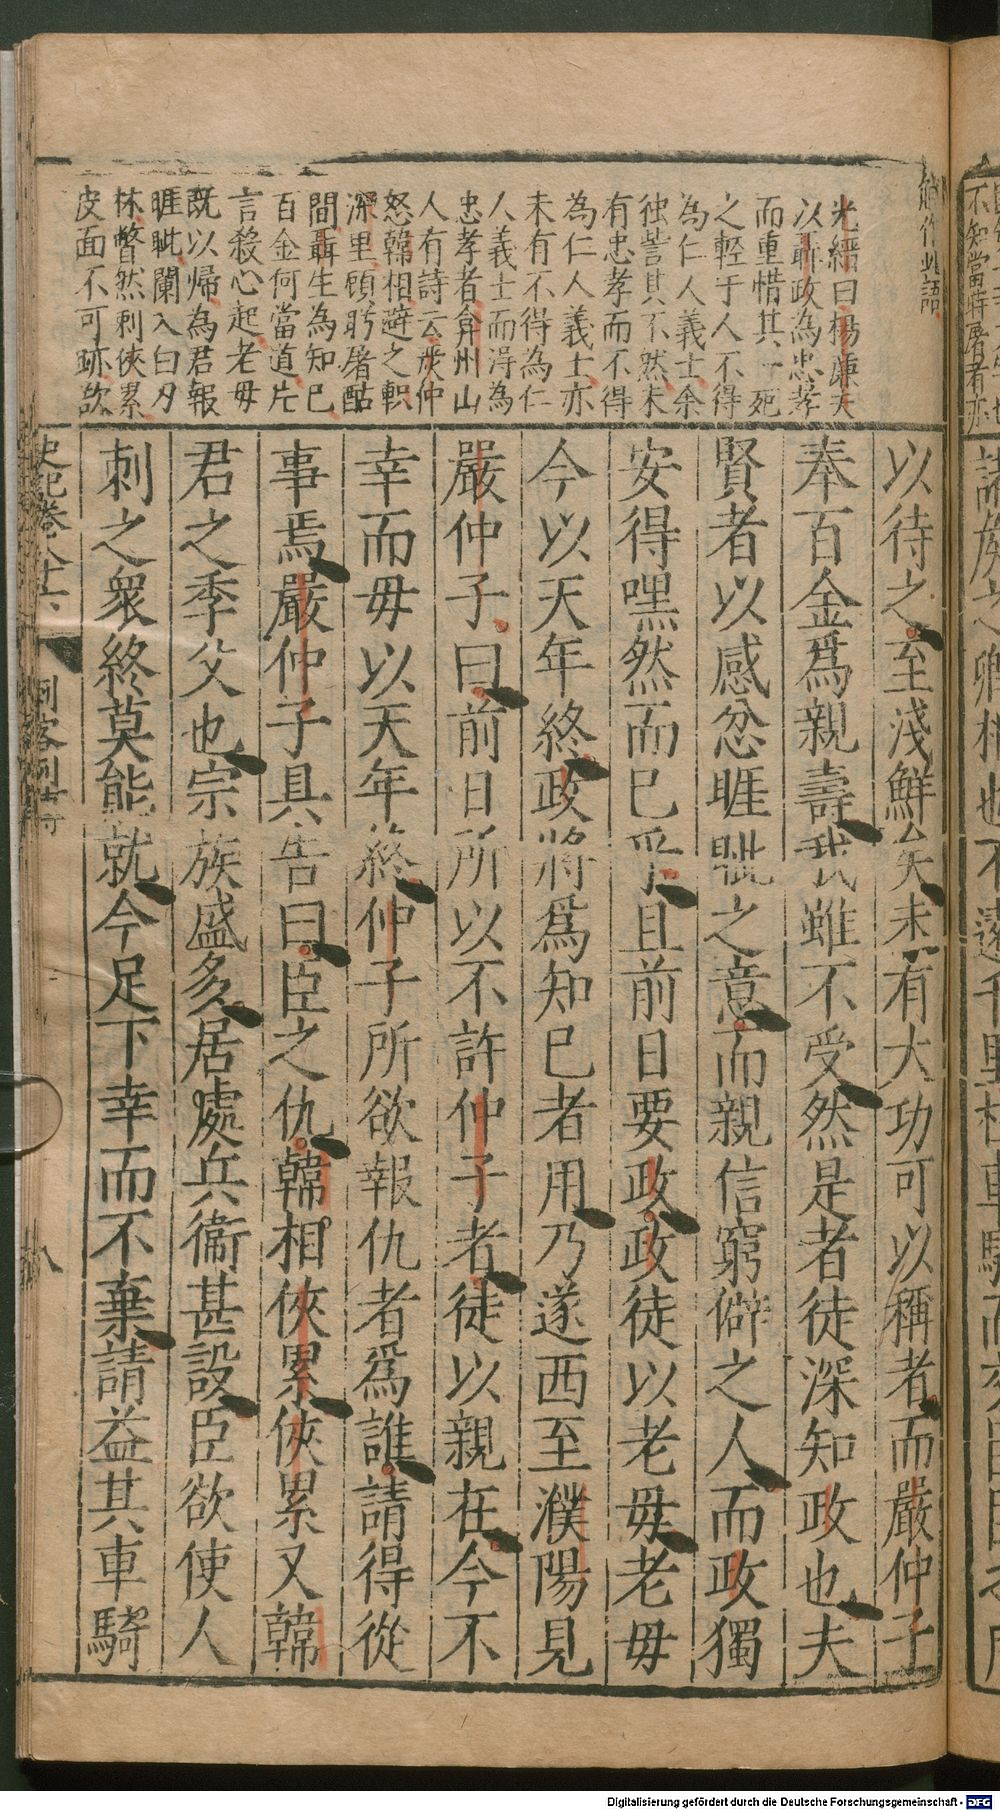 光縉曰楊廉夫
以聶政為忠孝
而重惜其一死
之輕于人不得
為仁人義士余
獨善其不然未
有忠孝而不得
為仁人義士亦
未有不得為仁
人義士而得為
忠孝者弇州山
人有詩云炭仲
怒韓相避之軹
深里頋盻屠酤
間聶生為知已
百金何當道片
言殺心起老母
既以歸為君報
睚眦闌入白刃
林瞥然刺俠累
皮面不可跡欷
以待之至淺鮮矣未有大功可以稱者而嚴仲子
奉百金爲親壽我雖不受然是者徒深知政也夫
賢者以感忿睚眦之意而親信窮僻之人而政獨
安得嘿然而已乎且前日要政政徒以老母老母
今以天年終政將爲知已者用乃遂西至濮陽見
嚴仲子曰前日所以不許仲子者徒以親在今不
幸而母以天年終仲子所欲報仇者爲誰請得從
事焉嚴仲子具告曰臣之仇韓相俠累俠累又韓
君之季父也宗族盛多居處兵衞甚設臣欲使人
刺之衆終莫能就今足下幸而不棄請益其車騎
史記卷八十六
刺客列傳
八
不知當時屠者亦
Digitalisierung gefördert durch die Deutsche Forschungsgemeinschaft - DFG